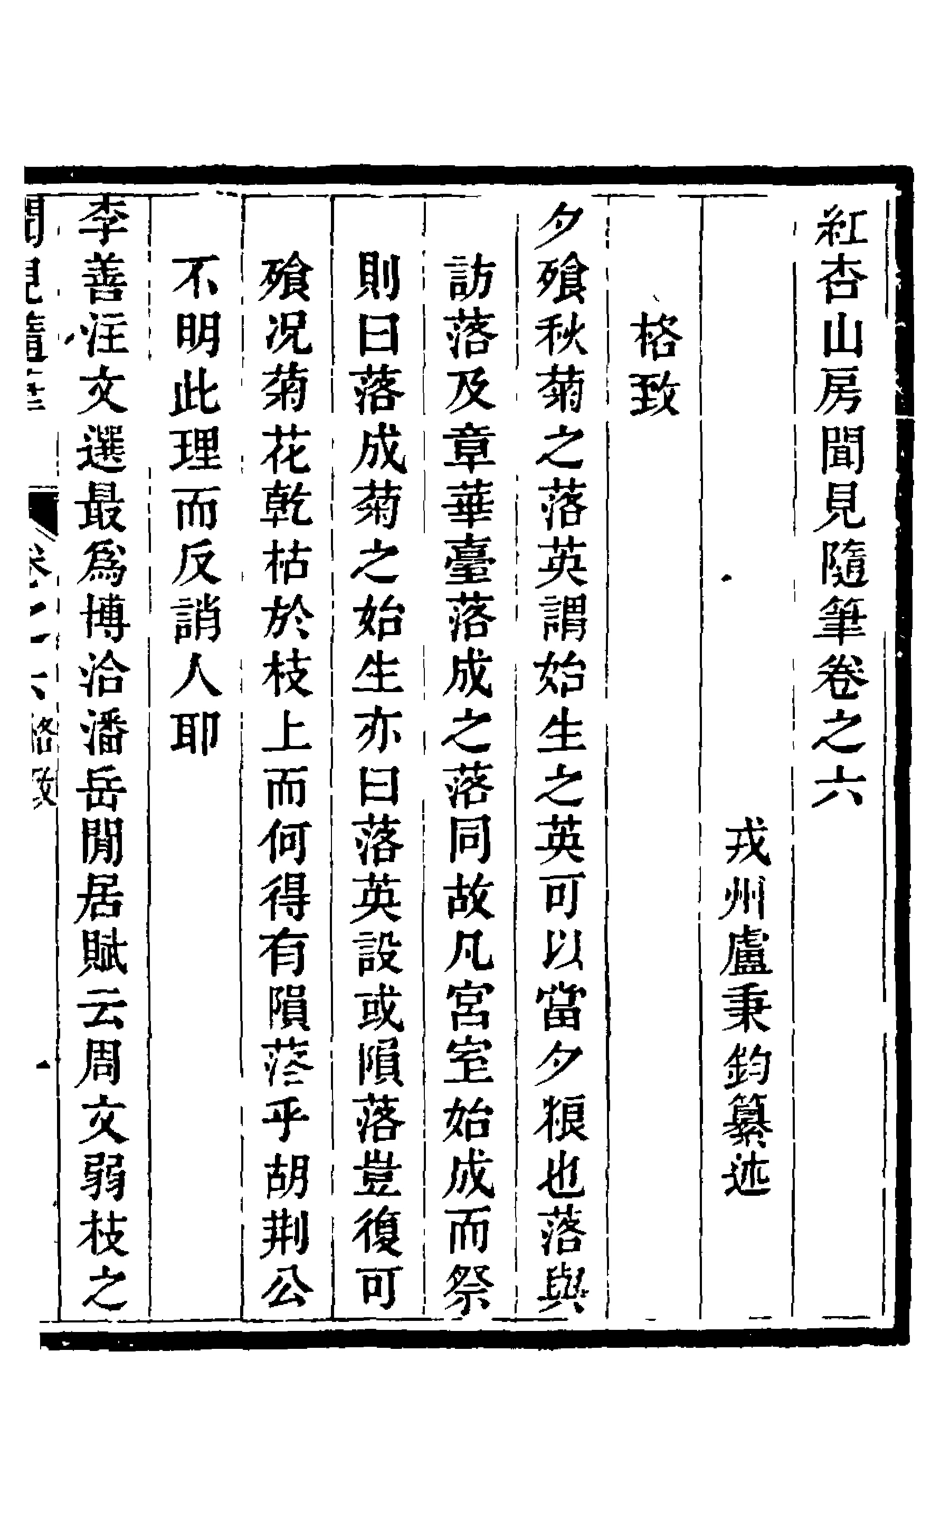 紅杏山房聞見隨筆卷之六
戎州盧秉鈞纂述
格致
夕飱秋菊之落英謂始生之英可以當夕粮也落與
訪落及章華臺落成之落同故凡宮室始成而祭
則曰落成菊之始生亦曰落英設或隕落豈復可
飱况菊花乾枯於枝上而何得有隕落乎胡荆公
不明此理而反誚人耶
李善注文選最爲博洽潘岳閒居賦云周文弱枝之
聞見隨筆 卷之六 格致